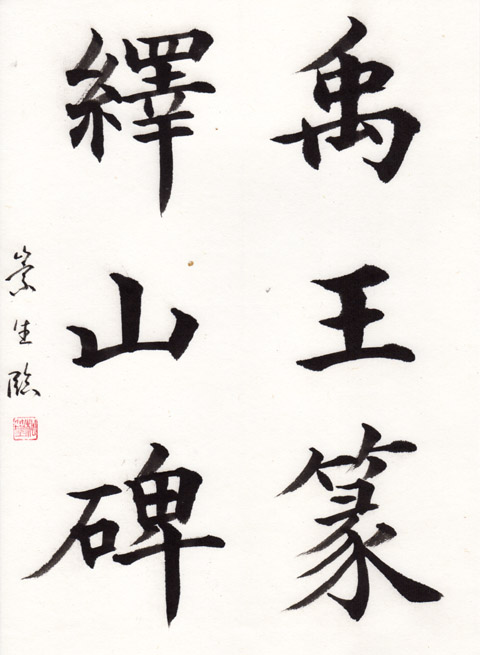 禹王篆
繹山碑
崇生臨